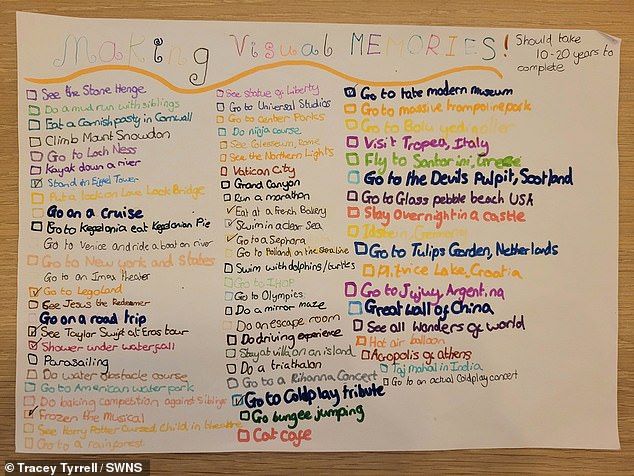 Making Visual MEMORIES!
Should take
10-20 years to
complete
See the Stone Henge
Do a mud run with siblings
Eat a Cornish pasty in Cornwall
Climb Mount Snowdon
Go to Loch Ness
Kayak down a river
Stand on Eiffel Tower
Put a lock on Love Lock Bridge
Go on a cruise
Go to Kefalonia eat Kefalonian Pie
Go to Venice and ride a boat on river
Go to New york and States
Go to an Imax theater
Go to Legoland
See Jesus the Redeemer
Go on a road trip
See Taylor Swift at Eros tour
Shower under waterfall
Parasailing
Do water obstacle course
Go to American water park
Do baking competition against Siblings
Frozen the Musical
See Harry Potter Cursed Child in theatre
Go to a rainforest
See statue of Liberty
Go to Universal Studios
Go to center Parks
Do ninja course
See Colosseum, Rome
See the Northern Lights
Vatican City
Grand Canyon
Run a marathon
Eat at a French Bakery
Swim in a clear Sea
Go to a Sephora
Go to Poland on the
Swim with dolphins/turtles
Go to IHOP
Go to Olympics
Do a mirror maze
Do an escape room
Do driving experience
Stay at villa on an island
Do a triathalon
Go to a Rihanna Concert
Go to Coldplay tribute
Go bungee jumping
Cat cafe
Go to tate modern museum
Go to massive trampoline park
Go to
Visit Tropea, Italy
Fly to Santorini, Greese
Go to the Devils Pulpit, Scotland
Go to Glass pebble beach USA
Stay Overnight in a castle
Idstein, Germany
Go to Tulips Garden, Netherlands
Plitvice Lake, Croatia
Go to Jujuy, Argentina
Great wall of China
See all Wonders of world
Hot air balloon
Acropolis of athens
Taj mahal in India
Go to an actual Coldplay concert
© Tracey Tyrrell / SWNS